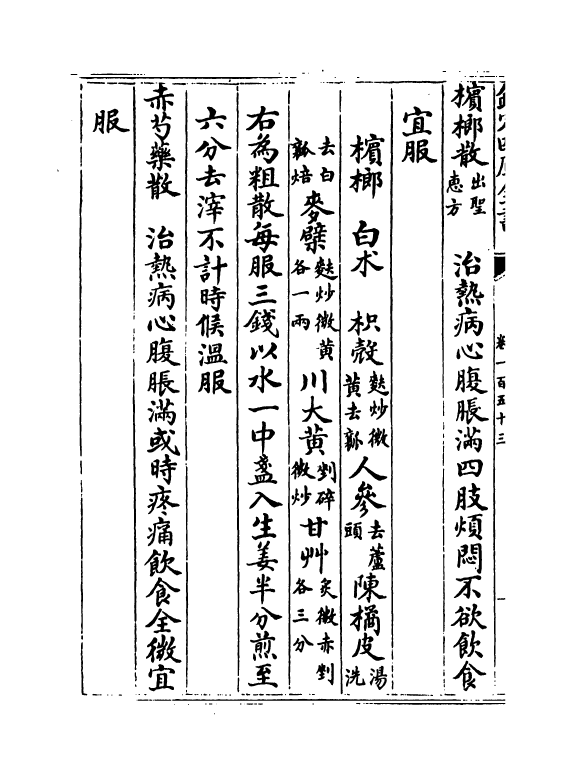 卷一百五十三
檳榔散出聖惠方　治熱病心腹脹滿四肢煩悶不欲飲食
宜服
檳榔　白朮　枳殼麩炒微黃去瓤人參去蘆頭陳橘皮湯洗
去白瓤焙麥糵麩炒微黃各一兩川大黃剉碎微炒甘艸炙微赤剉各三分
右為粗散每服三錢以水一中盞入生姜半分煎至
六分去滓不計時候溫服
赤芍藥散　治熱病心腹脹滿或時疼痛飲食全微宜
服